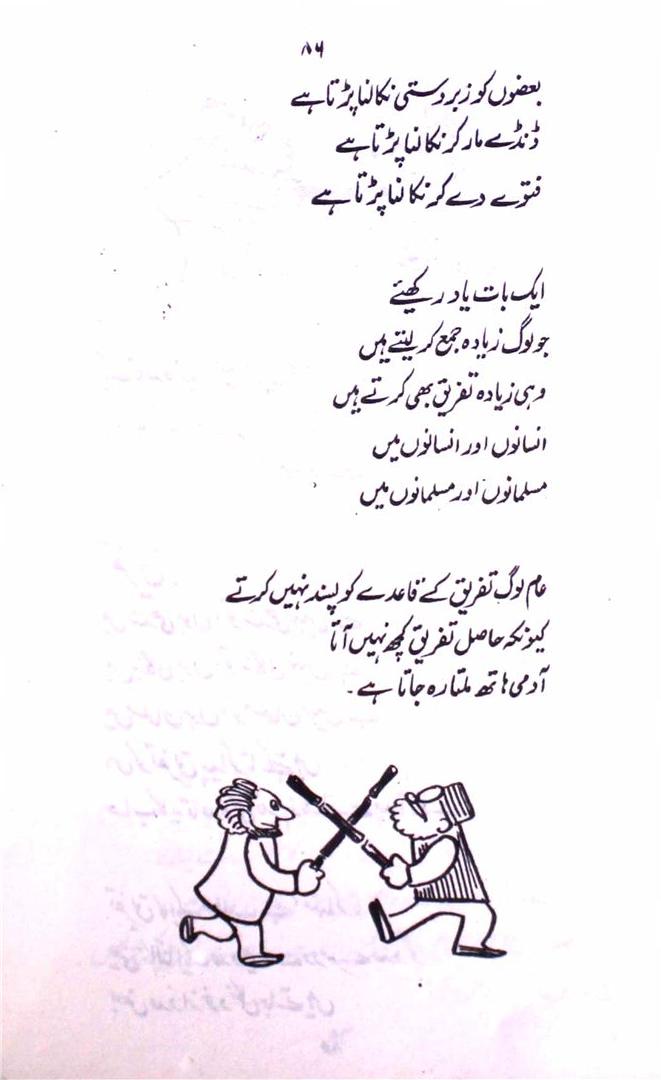 ۸۶
بعضوں کو زبردستی نکالنا پڑتا ہے
ڈنڈے مار کر نکالنا پڑتا ہے
فتوے دے کر نکالنا پڑتا ہے
ایک بات یاد رکھیئے
جو لوگ زیادہ جمع کر لیتے ہیں
وہی زیادہ تفریق بھی کرتے ہیں
انسانوں اور انسانوں میں
مسلمانوں اور مسلمانوں میں
عام لوگ تفریق کے قاعدے کو پسند نہیں کرتے
کیونکہ حاصل تفریق کچھ نہیں آتا
آدمی ہاتھ ملتا رہ جاتا ہے۔